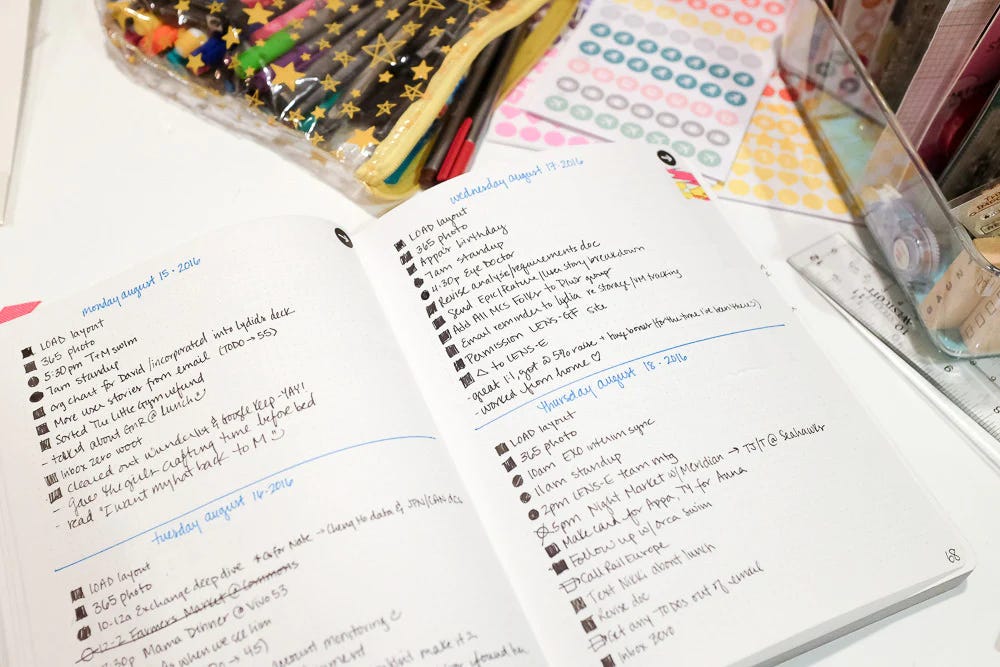 monday august 15 · 2016
LOAD layout
365 photo
5:30pm TrM swim
7am standup
org chart for David / incorporated into Lydia's deck
More user stories from email (TODO → 55)
Sorted The Little Gym refund
- talked about GMR @ lunch
Inbox zero woot
Cleared out wunderlist & Google Keep - YAY!
- Gave the girls crafting time before bed
- read "I want my hat back" to M
tuesday august 16 · 2016
LOAD layout
365 photo
10-12a Exchange deep dive
12-2 Farmers Market @ Commons
Mama Dinner @ Vivo 53
when we see him
→ 45)
account monitoring
make it 2
wednesday august 17 · 2016
LOAD layout
365 photo
Appa's birthday
7am standup
4:30p Eye Doctor
Revise analysis/requirements doc
Send Epic/Feature/User story breakdown
Add All MCS Folks to group
Email reminder to Lydia re storage/IM tracking
Permission LENS-GF site
△ to LENS-E
- great 1:1 got a 5% raise + hay bonus (for the time I've been there)
- worked from home ♡
thursday august 18 · 2016
LOAD layout
365 photo
10am EXO interim sync
11am standup
2pm LENS-E team mtg
5pm Night Market w/ Meridian → TJ/T @ Seahawks
Make card for Appa, TY for Anna
Follow up w/ Orca swim
Call Rail Europe
Text Nicki about lunch
Revise doc
Get any TODOs out of email
Inbox zero
68